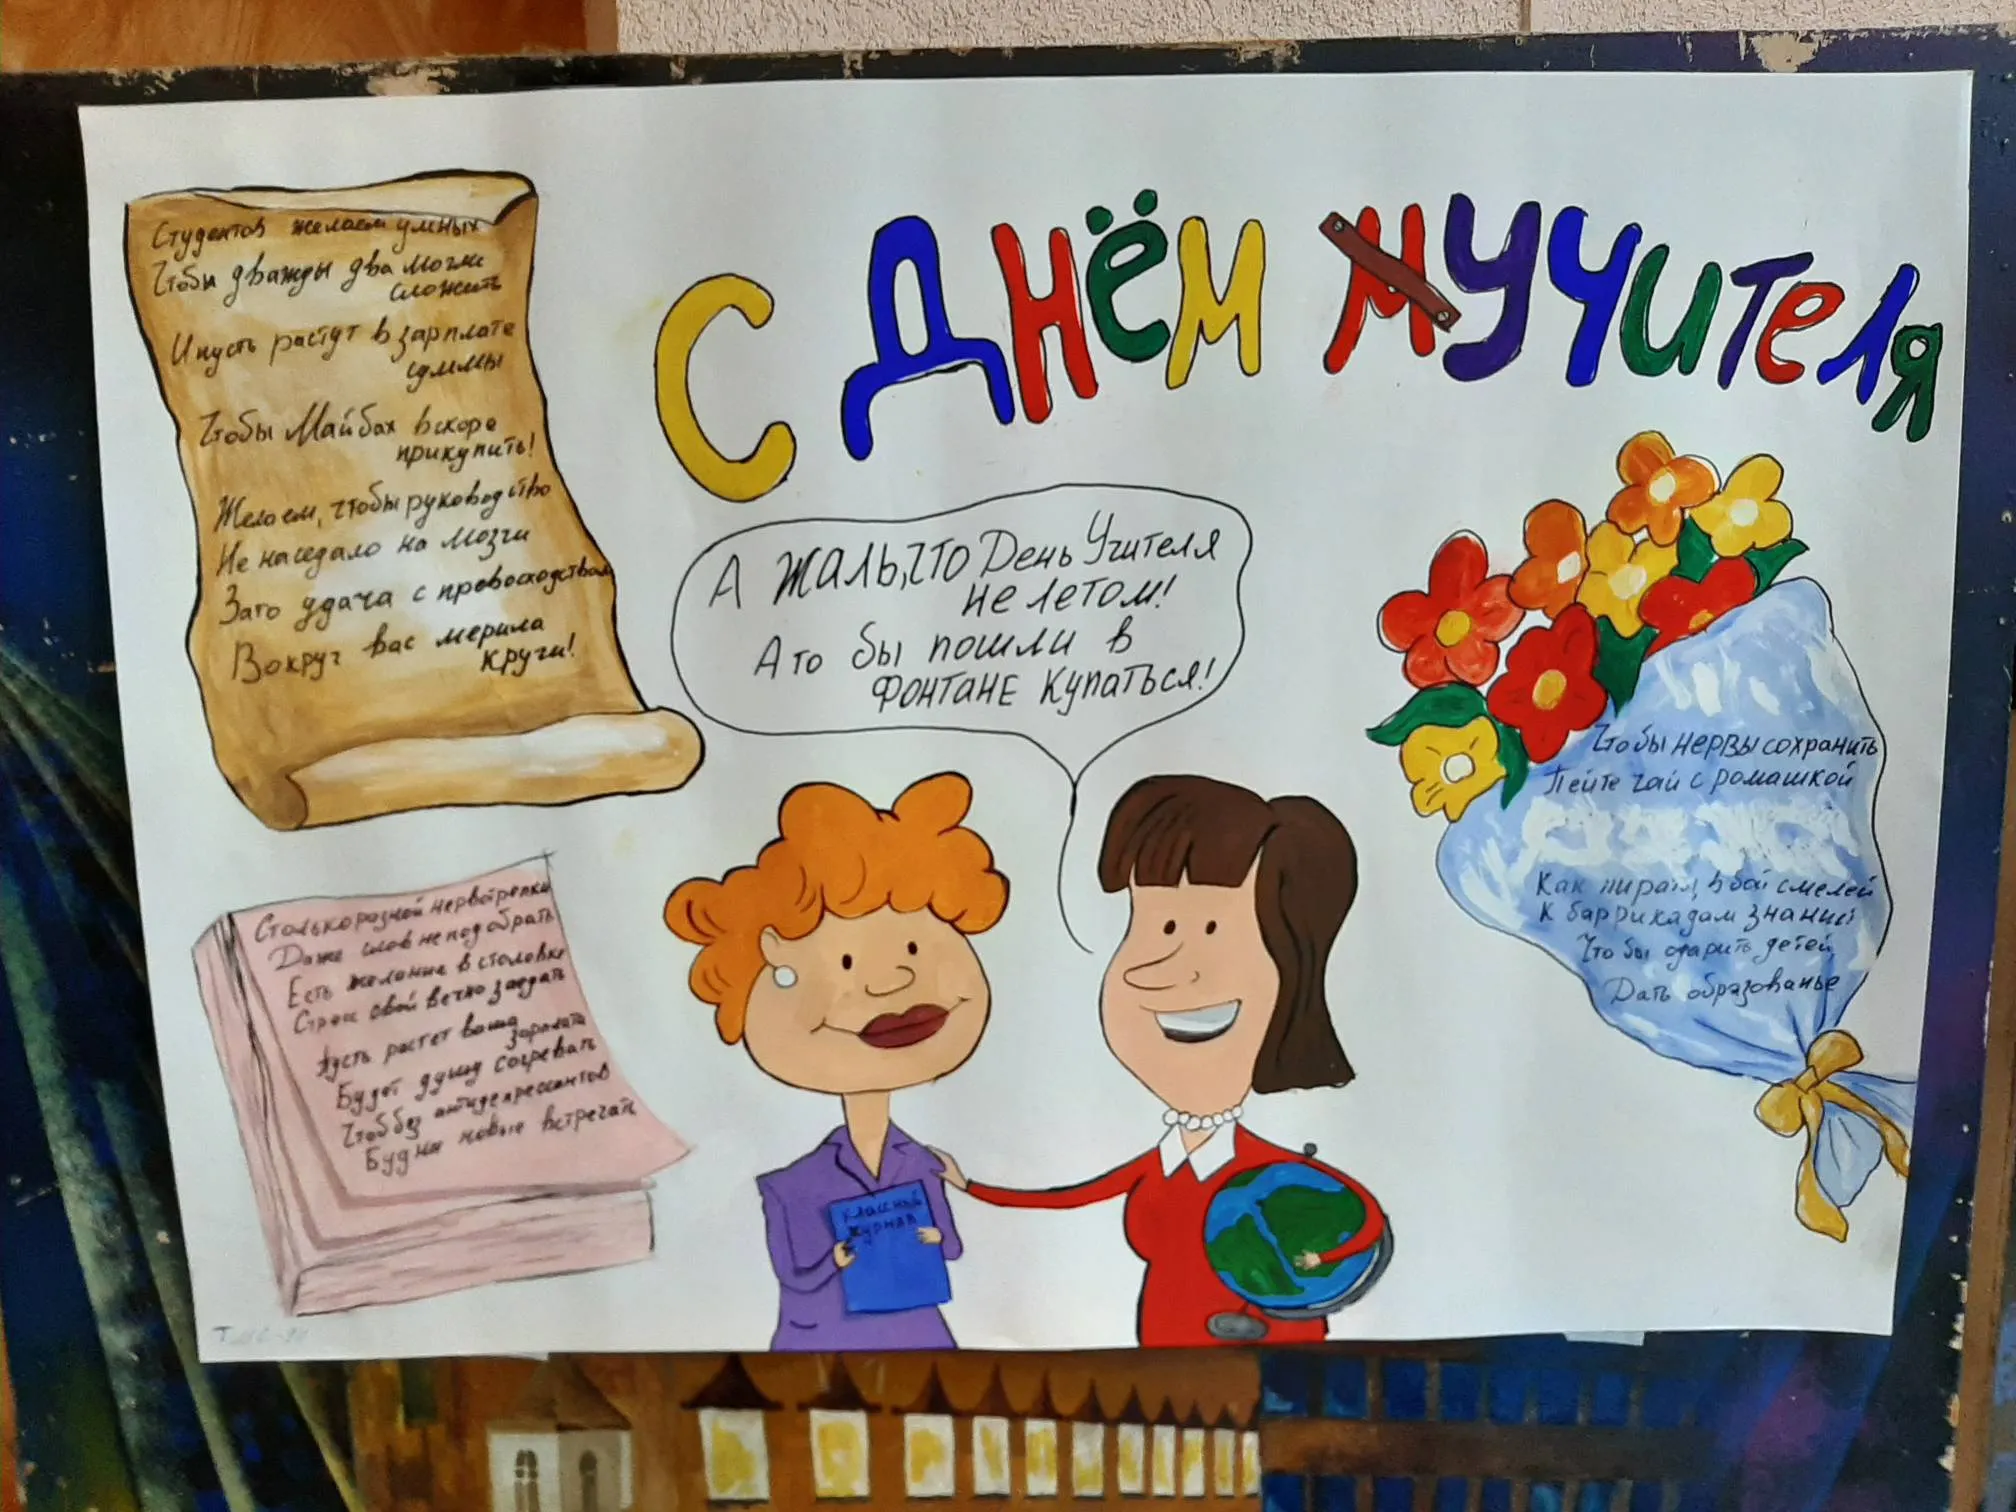 С ДНЁМ МУЧИТЕЛЯ
Студентов желаем умных
Чтобы дважды два могли
сложить
И пусть растут в зарплате
суммы
Чтобы Майбах вскоре
прикупить!
Желаем, чтобы руководство
Не наседало на мозги
Зато удача с превосходством
Вокруг вас мерила
круги!
А ЖАЛЬ, ЧТО День Учителя
не летом!
А то бы пошли в
фонтане купаться!
Чтобы нервы сохранить
Пейте чай с ромашкой
Как пират, в бой смелей
К баррикадам знаний
Чтобы одарить детей,
Дать образованье
Столько разной нервотрепки
Даже слов не подобрать
Есть желание в столовке
Стресс свой вечно заедать
Пусть растет ваша
зарплата
Будет душу согревать
Чтоб без антидепрессантов
Будни новые встречать
Классный
журнал